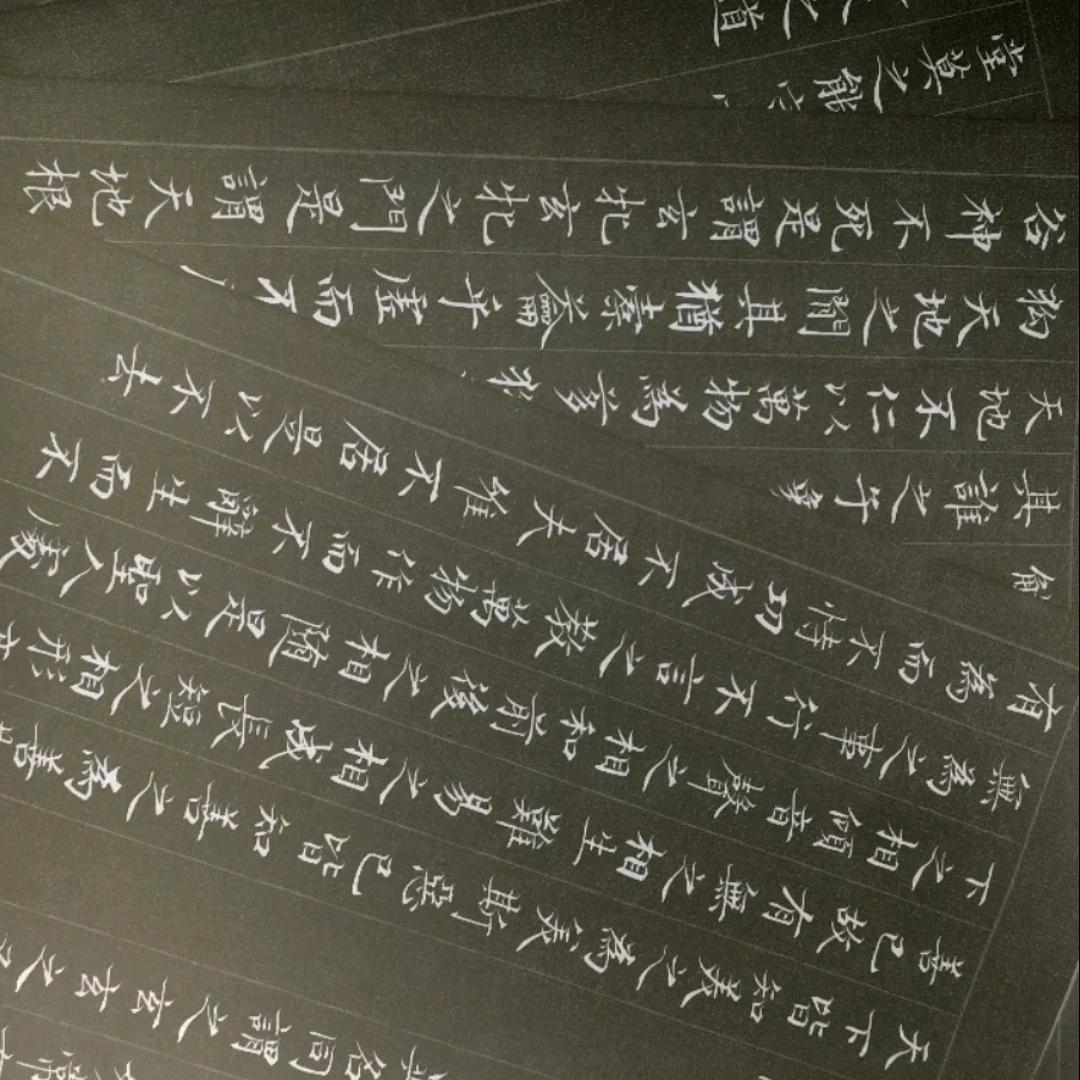 名同謂之玄玄之又
天下皆知美之為美斯惡已皆知善之為善
善已故有無之相生難易之相成長短之相形
下之相傾音聲之相和前後之相隨是以聖人處
無為之事行不言之教萬物作而不辭生而不
有為而不恃功成不居夫唯不居是以不去
其誰之子象
天地不仁以萬物為芻狗
狗天地之間其猶橐籥乎虛而不
谷神不死是謂玄牝玄牝之門是謂天地根
堂莫之能守
之道